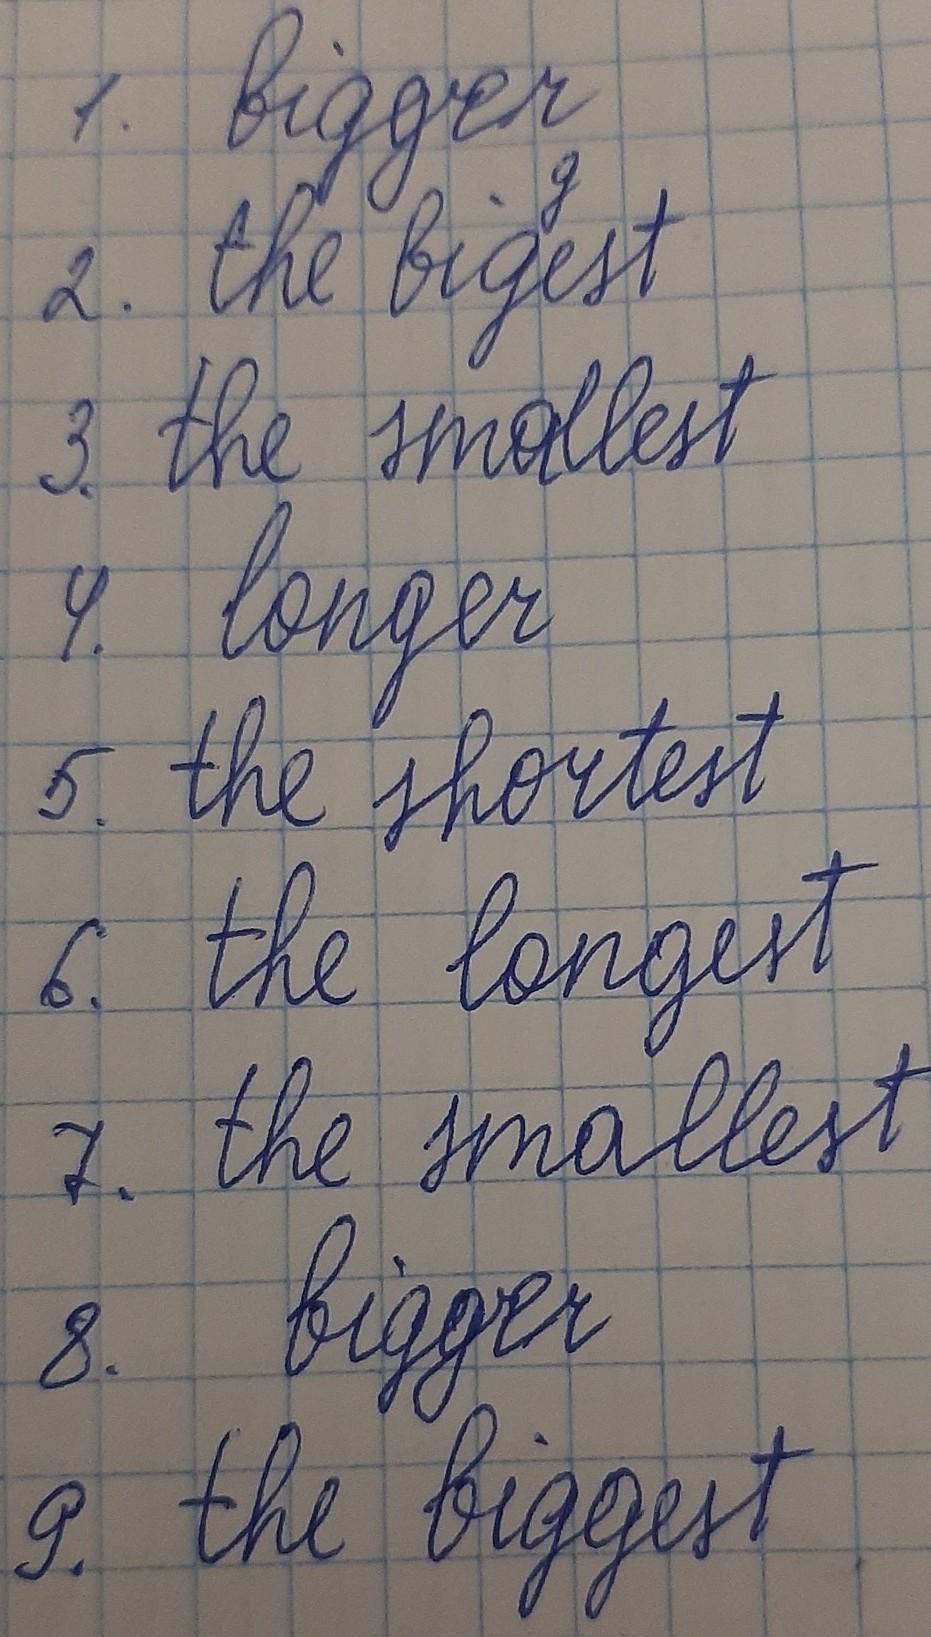 1. bigger
2. the biggest
3. the smallest
4. longer
5. the shortest
6. the longest
7. the smallest
8. bigger
9. the biggest